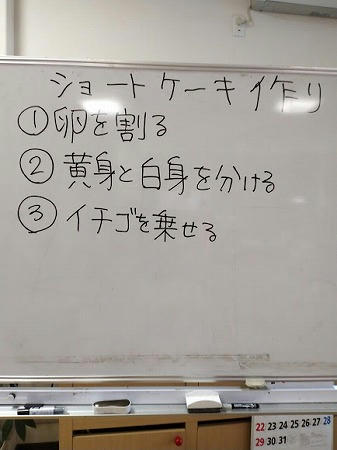 ショートケーキ作り
①卵を割る
②黄身と白身を分ける
③イチゴを乗せる
22 23 24 25 26 27 28
29 30 31